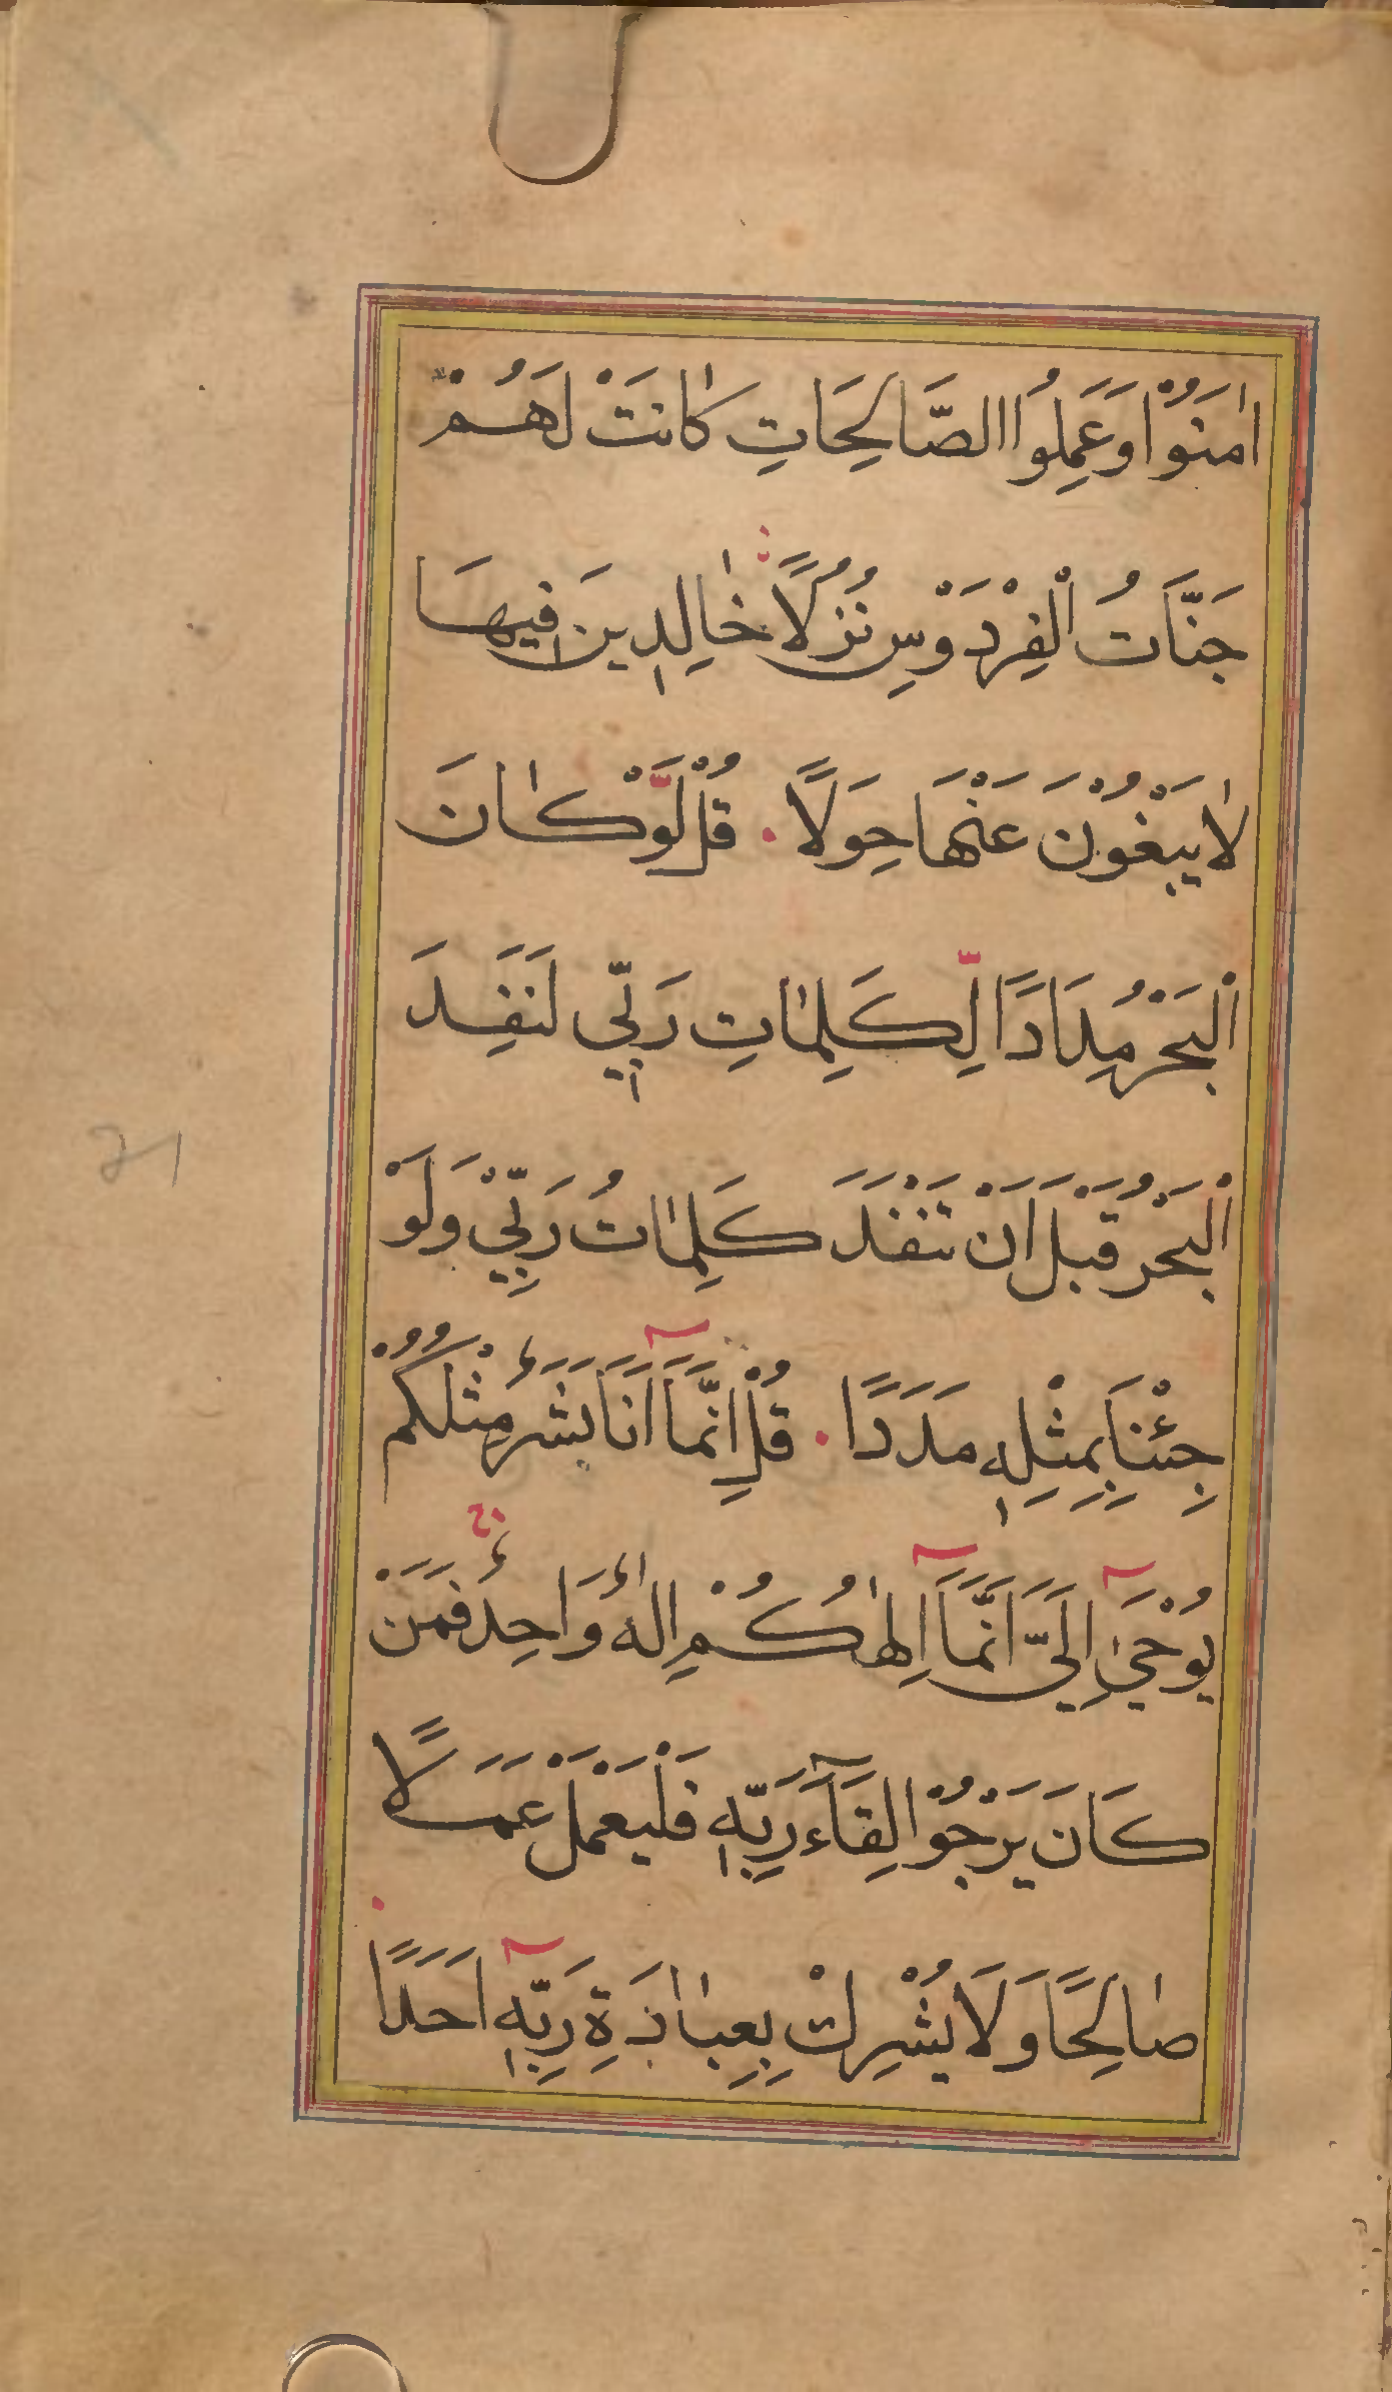 اٰمَنُوْا وَعَمِلُوا الصَّالِحَاتِ كَانَتْ لَهُمْ
جَنَّاتُ الْفِرْدَوْسِ نُزُلًا خٰالِدٖينَ فٖيهَا
لٰا يَبْغُوْنَ عَنْهَا حِوَلًا ۰ قُلْ لَّوْ كٰانَ
الْبَحْرُ مِدَادًا لِّكَلِمٰاتِ رَبّٖي لَنَفِدَ
الْبَحْرُ قَبْلَ اَنْ تَنْفَدَ كَلِمٰاتُ رَبِّيْ وَلَوْ
جِئْنَا بِمِثْلِهٖ مَدَدًا ۰ قُلْ اِنَّمَآ اَنَا بَشَرٌ مِثْلُكُمْ
يُوْحَيٰ اِلَيَّ اَنَّمَآ اِلٰهُكُمْ اِلٰهٌ وَاحِدٌ فَمَنْ
كَانَ يَرْجُوْا لِقَآءَ رَبِّهٖ فَلْيَعْمَلْ عَمَلًا
صٰالِحًا وَلَا يُشْرِكْ بِعِبٰادَةِ رَبِّهٖٓ اَحَدًا